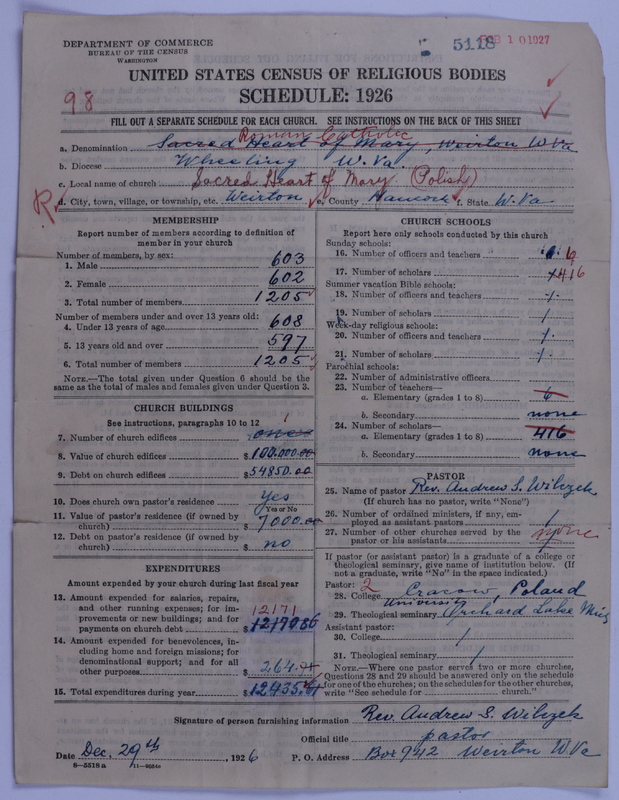 DEPARTMENT OF COMMERCE
BUREAU OF THE CENSUS
WASHINGTON
5118
FEB 10 1927
UNITED STATES CENSUS OF RELIGIOUS BODIES
SCHEDULE: 1926
98
FILL OUT A SEPARATE SCHEDULE FOR EACH CHURCH. SEE INSTRUCTIONS ON THE BACK OF THIS SHEET
Roman Catholic
a. Denomination Sacred Heart of Mary Weirton W Va
b. Diocese Wheeling W. Va.
c. Local name of church Sacred Heart of Mary (Polish)
R d. City, town, village, or township, etc. Weirton e. County Hancock f. State W. Va
MEMBERSHIP
Report number of members according to definition of
member in your church
Number of members, by sex:
1. Male 603
2. Female 602
3. Total number of members 1205
Number of members under and over 13 years old:
4. Under 13 years of age 608
5. 13 years old and over 597
6. Total number of members 1205
NOTE.—The total given under Question 6 should be
the same as the total of males and females given under Question 3.
CHURCH BUILDINGS
See instructions, paragraphs 10 to 12
1
7. Number of church edifices one
8. Value of church edifices $100,000.00
9. Debt on church edifices $54850.00
10. Does church own pastor's residence yes
Yes or No
11. Value of pastor's residence (if owned by
church) $7000.00
12. Debt on pastor's residence (if owned by
church) $ no
EXPENDITURES
Amount expended by your church during last fiscal year
13. Amount expended for salaries, repairs,
and other running expenses; for im-
provements or new buildings; and for
payments on church debt $
12171
14. Amount expended for benevolences, in-
cluding home and foreign missions; for
denominational support; and for all
other purposes $ 264.
15. Total expenditures during year $ 12435.
CHURCH SCHOOLS
Report here only schools conducted by this church
Sunday schools:
16. Number of officers and teachers 6
17. Number of scholars 416
Summer vacation Bible schools:
18. Number of officers and teachers /
19. Number of scholars /
Week-day religious schools:
20. Number of officers and teachers /
21. Number of scholars /
Parochial schools:
22. Number of administrative officers
23. Number of teachers—
a. Elementary (grades 1 to 8) 6
b. Secondary none
24. Number of scholars—
a. Elementary (grades 1 to 8) 416
b. Secondary none
PASTOR
25. Name of pastor Rev. Andrew S. Wilczek
(If church has no pastor, write "None")
26. Number of ordained ministers, if any, em-
ployed as assistant pastors /
27. Number of other churches served by the
pastor or his assistants none
If pastor (or assistant pastor) is a graduate of a college or
theological seminary, give name of institution below. (If
not a graduate, write "No" in the space indicated.)
Pastor: 2
28. College Cracow, Poland
University
29. Theological seminary Orchard Lake Mich
Assistant pastor:
30. College /
31. Theological seminary /
NOTE.—Where one pastor serves two or more churches,
Questions 28 and 29 should be answered only on the schedule
for one of the churches; on the schedules for the other churches,
write "See schedule for church."
Signature of person furnishing information Rev. Andrew S. Wilczek
Official title pastor
Date Dec. 29th, 1926 P. O. Address Box 942 Weirton W. Va
8—5518a 11—9054e